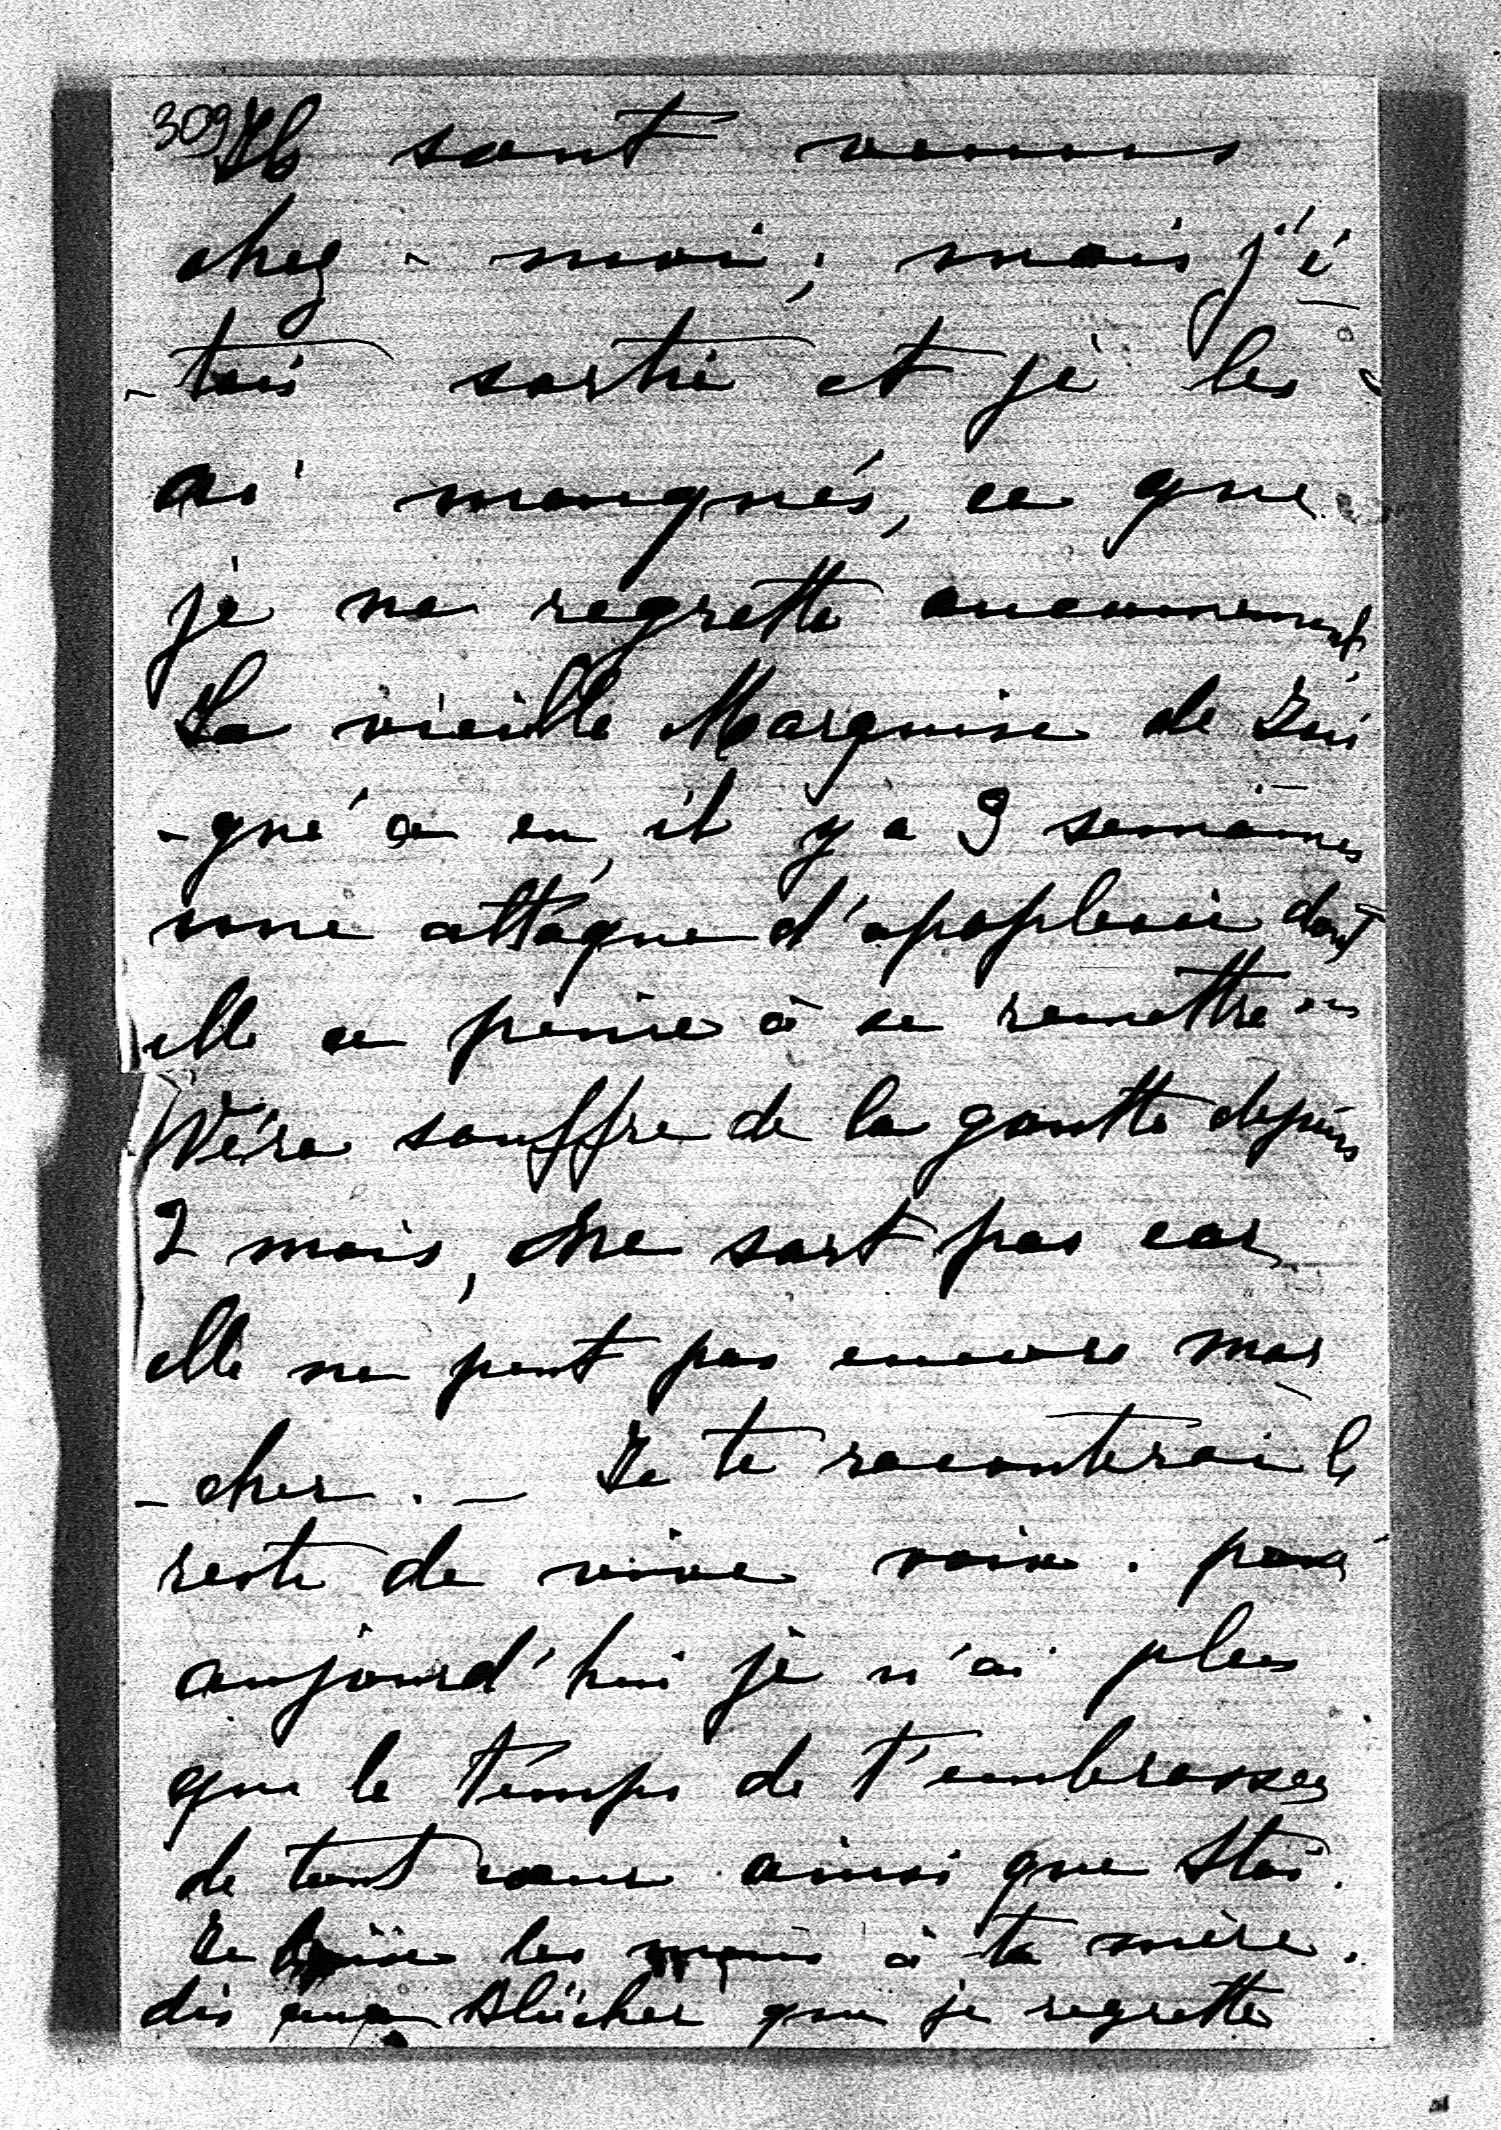 309 Ils sont venus
chez-moi, mais j'é-
-tais sortie et je les
ai manqués, ce que
je ne regrette aucunement
La vieille Marquise de
-gné a eu, il y a 3 semaines
une attaque d'apoplexie dont
elle a peine à se remettre
Wéra souffre de la goutte depuis
2 mois, & ne sort pas car
elle ne peut pas encore mar
-cher. — Je te raconterai le
reste de vive voix. pour
aujourd'hui je n'ai plus
que le temps de t'embrasser
de tout cœur ainsi que
Je baise les mains à ta mère.
dis aux Blücher que je regrette